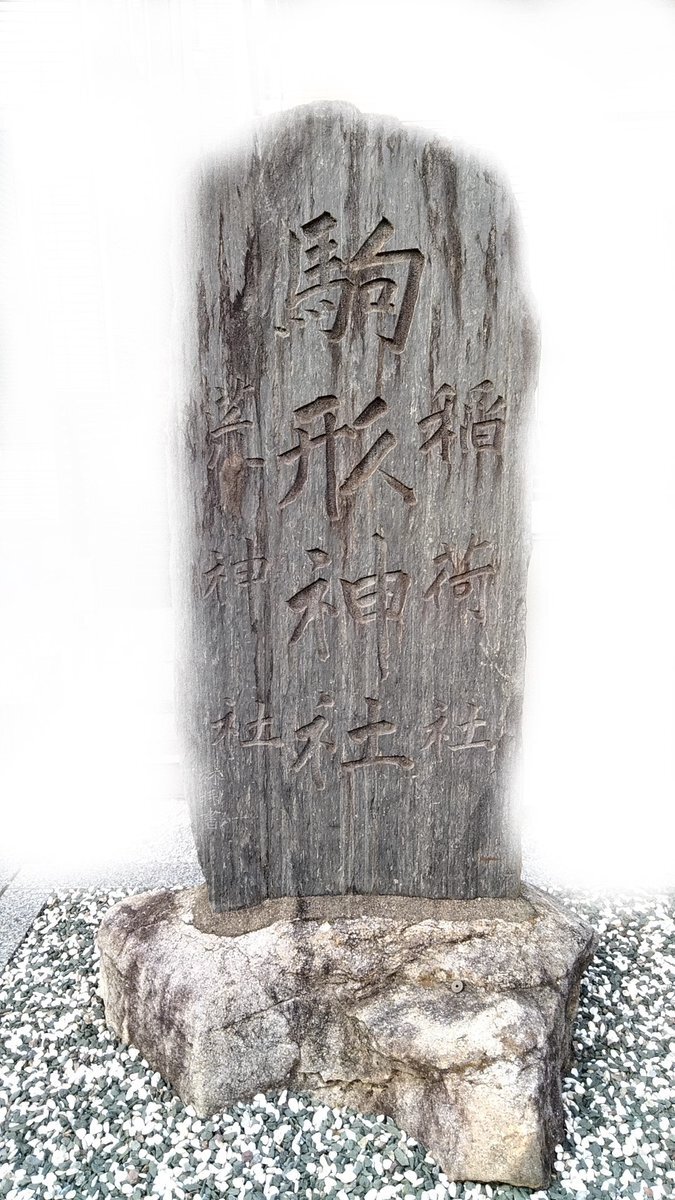 稲荷社
駒形神社
荒神社